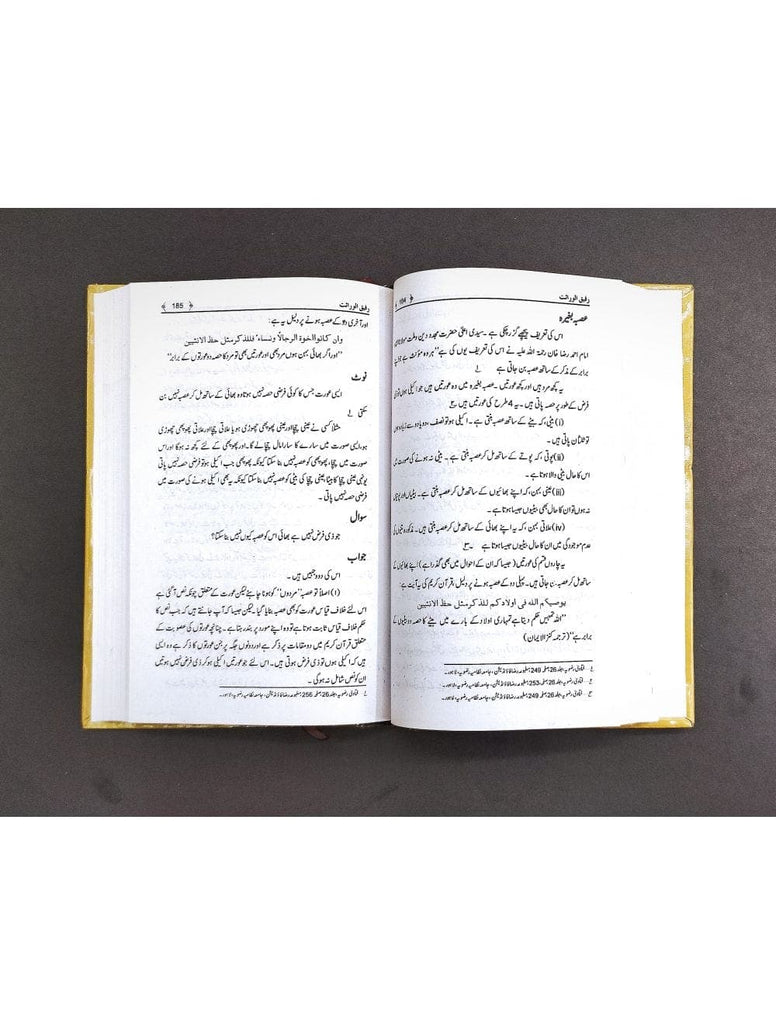 رفیق الوراثت ﴿ 184 ﴾
عصبہ بغیرہ
اس کی تعریف پیچھے گزر چکی ہے۔ سیدی اعلیٰ حضرت مجدد دین وملت مولانا
امام احمد رضا خان رحمۃ اللہ علیہ نے اس کی تعریف یوں کی ہے "ہر وہ مؤنث ہے جو اپنے
برابر کے مذکر کے ساتھ عصبہ بن جاتی ہے
یہ کچھ مرد ہیں اور کچھ عورتیں۔ عصبہ بغیرہ میں وہ عورتیں ہیں جو اکیلی ہوں
فرض کے طور پر حصہ پاتی ہیں۔ یہ 4 طرح کی عورتیں ہیں
(i) بیٹی، کہ بیٹے کے ساتھ مل کر عصبہ بنتی ہے۔ اکیلی ہو تو نصف، دو یا دو سے زیادہ ہوں
تو ثلثان پاتی ہیں۔
(ii) پوتی، کہ پوتے کے ساتھ مل کر عصبہ بنتی ہے۔ بیٹی نہ ہونے کی صورت میں
اس کا حال بیٹی والا ہوتا ہے۔
(iii) عینی بہن، کہ اپنے بھائیوں کے ساتھ مل کر عصبہ بنتی ہے۔ بیٹیاں اور پوتیاں
نہ ہوں تو ان کا حال بھی بیٹیوں جیسا ہوتا ہے۔
(iv) علاتی بہن، کہ یہ اپنے بھائی کے ساتھ مل کر عصبہ بنتی ہیں۔ مذکورہ تینوں کی
عدم موجودگی میں ان کا حال بھی بیٹیوں جیسا ہوتا ہے
یہ چاروں قسم کی عورتیں (جیسا کہ ان کے احوال میں بھی گذرا ہے) اپنے بھائیوں کے
ساتھ مل کر عصبہ بن جاتی ہیں۔ پہلی دو کے عصبہ ہونے پر دلیل، قرآن کریم کی یہ آیت ہے:
یوصیکم اللہ فی اولادکم للذکر مثل حظ الانثیین
"اللہ تمہیں حکم دیتا ہے تمہاری اولاد کے بارے میں بیٹے کا حصہ دو بیٹیوں کے
برابر ہے" (ترجمہ کنز الایمان)
فتاوی رضویہ، جلد 26 صفحہ 249 مطبوعہ رضا فاؤنڈیشن، جامعہ نظامیہ رضویہ، لاہور۔
فتاوی رضویہ، جلد 26 صفحہ 253 مطبوعہ رضا فاؤنڈیشن، جامعہ نظامیہ رضویہ، لاہور۔
فتاوی رضویہ، جلد 26 صفحہ 249 مطبوعہ رضا فاؤنڈیشن، جامعہ نظامیہ رضویہ، لاہور۔
رفیق الوراثت ﴿ 185 ﴾
اور آخری دو کے عصبہ ہونے پر دلیل یہ ہے:
وان کانوا اخوۃ الرجالاً ونساء فللذکر مثل حظ الانثیین
"اور اگر بھائی بہن ہوں مرد بھی اور عورتیں بھی تو مرد کا حصہ دو عورتوں کے برابر"
نوٹ
ایسی عورت جس کا کوئی فرضی حصہ نہیں ہوتا وہ بھائی کے ساتھ مل کر عصبہ نہیں بن
سکتی
مثلاً کسی نے عینی چچا اور عینی پھوپھی چھوڑی ہو یا علاتی چچا اور علاتی پھوپھی چھوڑی
ہو، ایسی صورت میں سارے کا سارا مال چچا کے لئے ہوگا۔ اور پھوپھی کے لئے کچھ نہ ہوگا اور اس
صورت میں چچا، پھوپھی کو عصبہ نہیں بنا سکتا کیونکہ پھوپھی جب اکیلی ہو تو فرضی حصہ نہیں پاتی
یونہی عینی چچا کا بیٹا، عینی چچا کی بیٹی کو عصبہ نہیں بنا سکتا کیونکہ یہ بھی اکیلی ہونے کی صورت میں
فرضی حصہ نہیں پاتی۔
سوال
جو ذی فرض نہیں ہے بھائی اس کو عصبہ کیوں نہیں بنا سکتا؟
جواب
اس کی دو وجہیں ہیں۔
(۱) اصلاً تو عصبہ "مردوں" کو ہونا چاہئے لیکن عورت کے متعلق چونکہ نص آ گئی ہے
اس لئے خلاف قیاس عورت کو بھی عصبہ بنایا گیا۔ لیکن جیسا کہ آپ جانتے ہیں کہ جب نص کا
حکم خلاف قیاس ثابت ہوتا ہے تو وہ اپنے مورد پر بند رہتا ہے۔ چنانچہ عورتوں کی عصوبت کے
متعلق قرآن کریم میں دو مقامات پر ذکر ہے اور دونوں جگہ پر جن عورتوں کا ذکر ہے وہ ایسی ہیں
کہ اکیلی ہوں تو ذی فرض ہوتی ہیں۔ اس لئے جو عورتیں اکیلی ہو کر ذی فرض نہیں ہوتیں
ان کو نص شامل نہ ہوگی۔
فتاوی رضویہ، جلد 26 صفحہ 256 مطبوعہ رضا فاؤنڈیشن، جامعہ نظامیہ رضویہ، لاہور۔